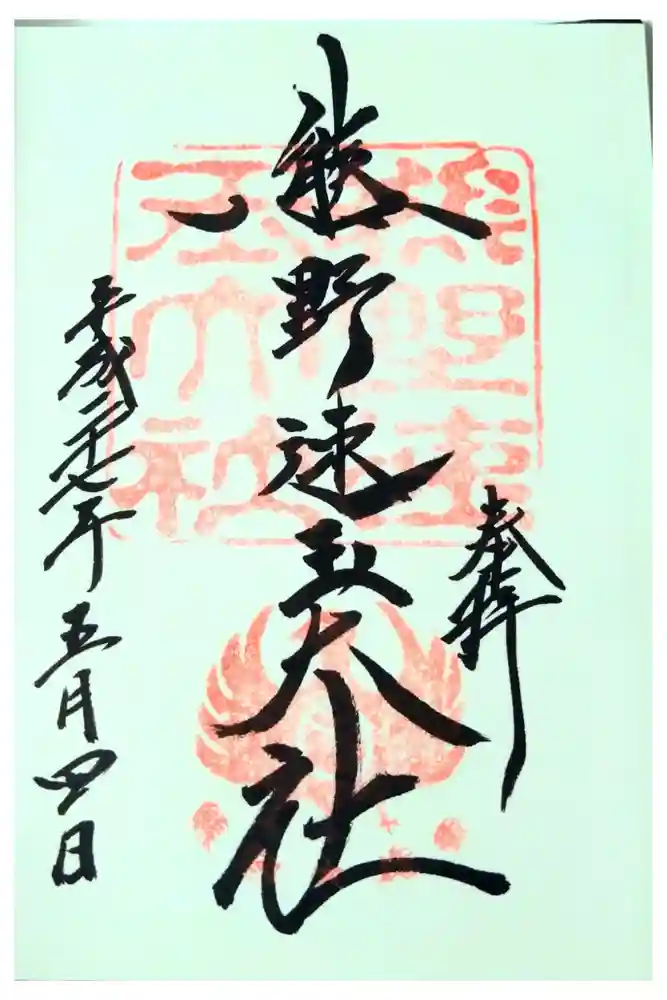 奉拝
熊野速玉大社
平成二十七年五月四日
熊野速
玉大社